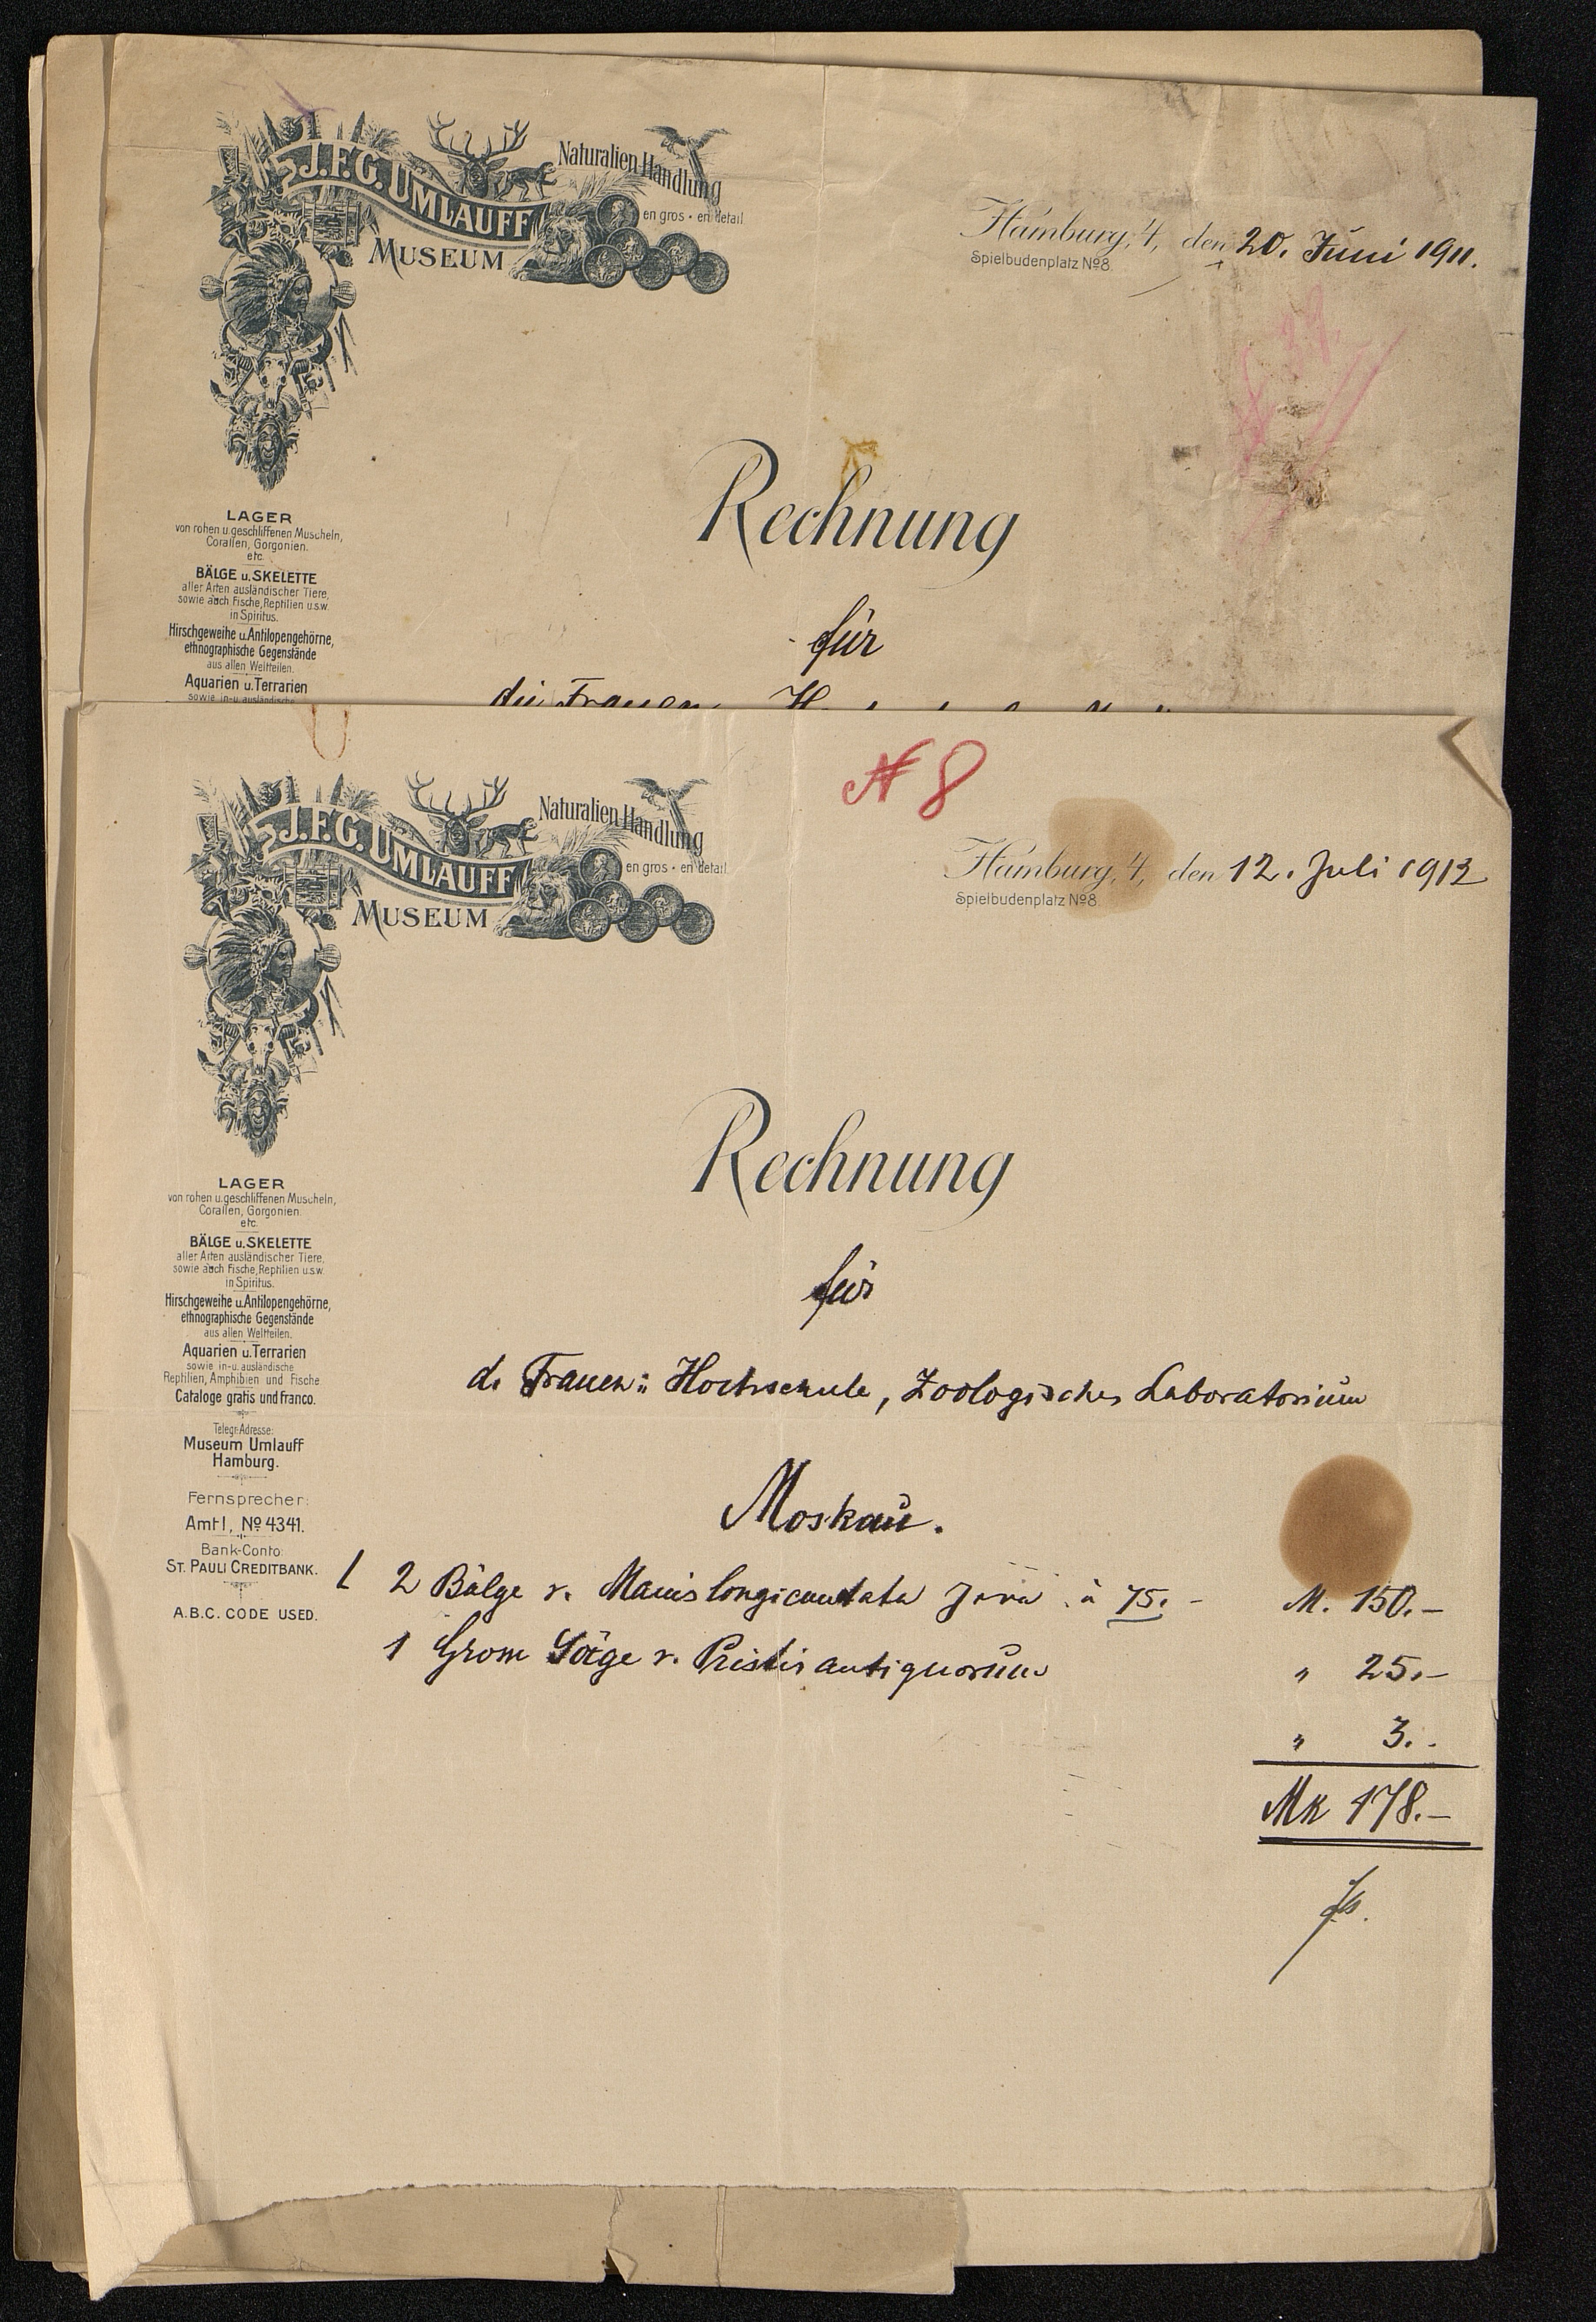 J.F.G. UMLAUFF
MUSEUM
Naturalien-Handlung
en gros • en detail
Hamburg, 4, den 20. Juni 1911.
Spielbudenplatz No 8.
Rechnung
für
LAGER
von rohen u. geschliffenen Muscheln,
Corallen, Gorgonien.
etc.
BÄLGE u. SKELETTE
aller Arten ausländischer Tiere,
sowie auch Fische, Reptilien u.s.w.
in Spiritus.
Hirschgeweihe u. Antilopengehörne,
ethnographische Gegenstände
aus allen Weltteilen.
Aquarien u. Terrarien
sowie in- u. ausländische
die Frauen
N 8
J.F.G. UMLAUFF
MUSEUM
Naturalien-Handlung
en gros • en detail
Hamburg, 4, den 12. Juli 1912
Spielbudenplatz No 8.
Rechnung
für
d. Frauen: Hochschule, Zoologisches Laboratorium
Moskau.
LAGER
von rohen u. geschliffenen Muscheln,
Corallen, Gorgonien.
etc.
BÄLGE u. SKELETTE
aller Arten ausländischer Tiere,
sowie auch Fische, Reptilien u.s.w.
in Spiritus.
Hirschgeweihe u. Antilopengehörne,
ethnographische Gegenstände
aus allen Weltteilen.
Aquarien u. Terrarien
sowie in- u. ausländische
Reptilien, Amphibien und Fische
Cataloge gratis und franco.
Telegr.-Adresse:
Museum Umlauff
Hamburg.
Fernsprecher:
Amt I, No 4341.
Bank-Conto:
ST. PAULI CREDITBANK.
A.B.C. CODE USED.
2 Bälge v. Manis longicaudata à 75.- M. 150.-
1 Säge v. Pristis antiquorum " 25.-
" 3.-
Mk 178.-